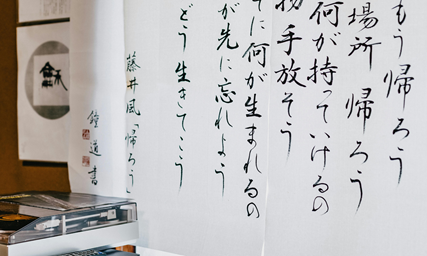 もう 帰ろう
場所 帰ろう
何が持っていけるの
物 手放そう
てに何が生まれるの
が先に忘れよう
どう生きてこう
藤井風「帰ろう」
鐘道書